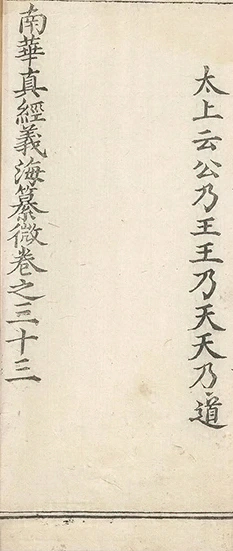 太上云公乃王王乃天天乃道
南華真經義海纂微卷之三十三